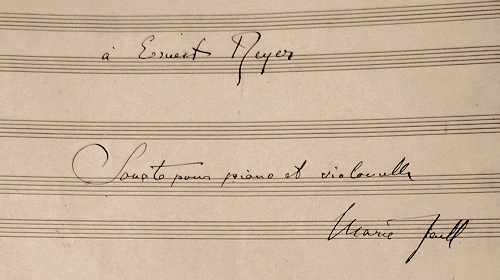 à Ernest Reyer
Sonate pour piano et violoncelle
Marie Jaëll